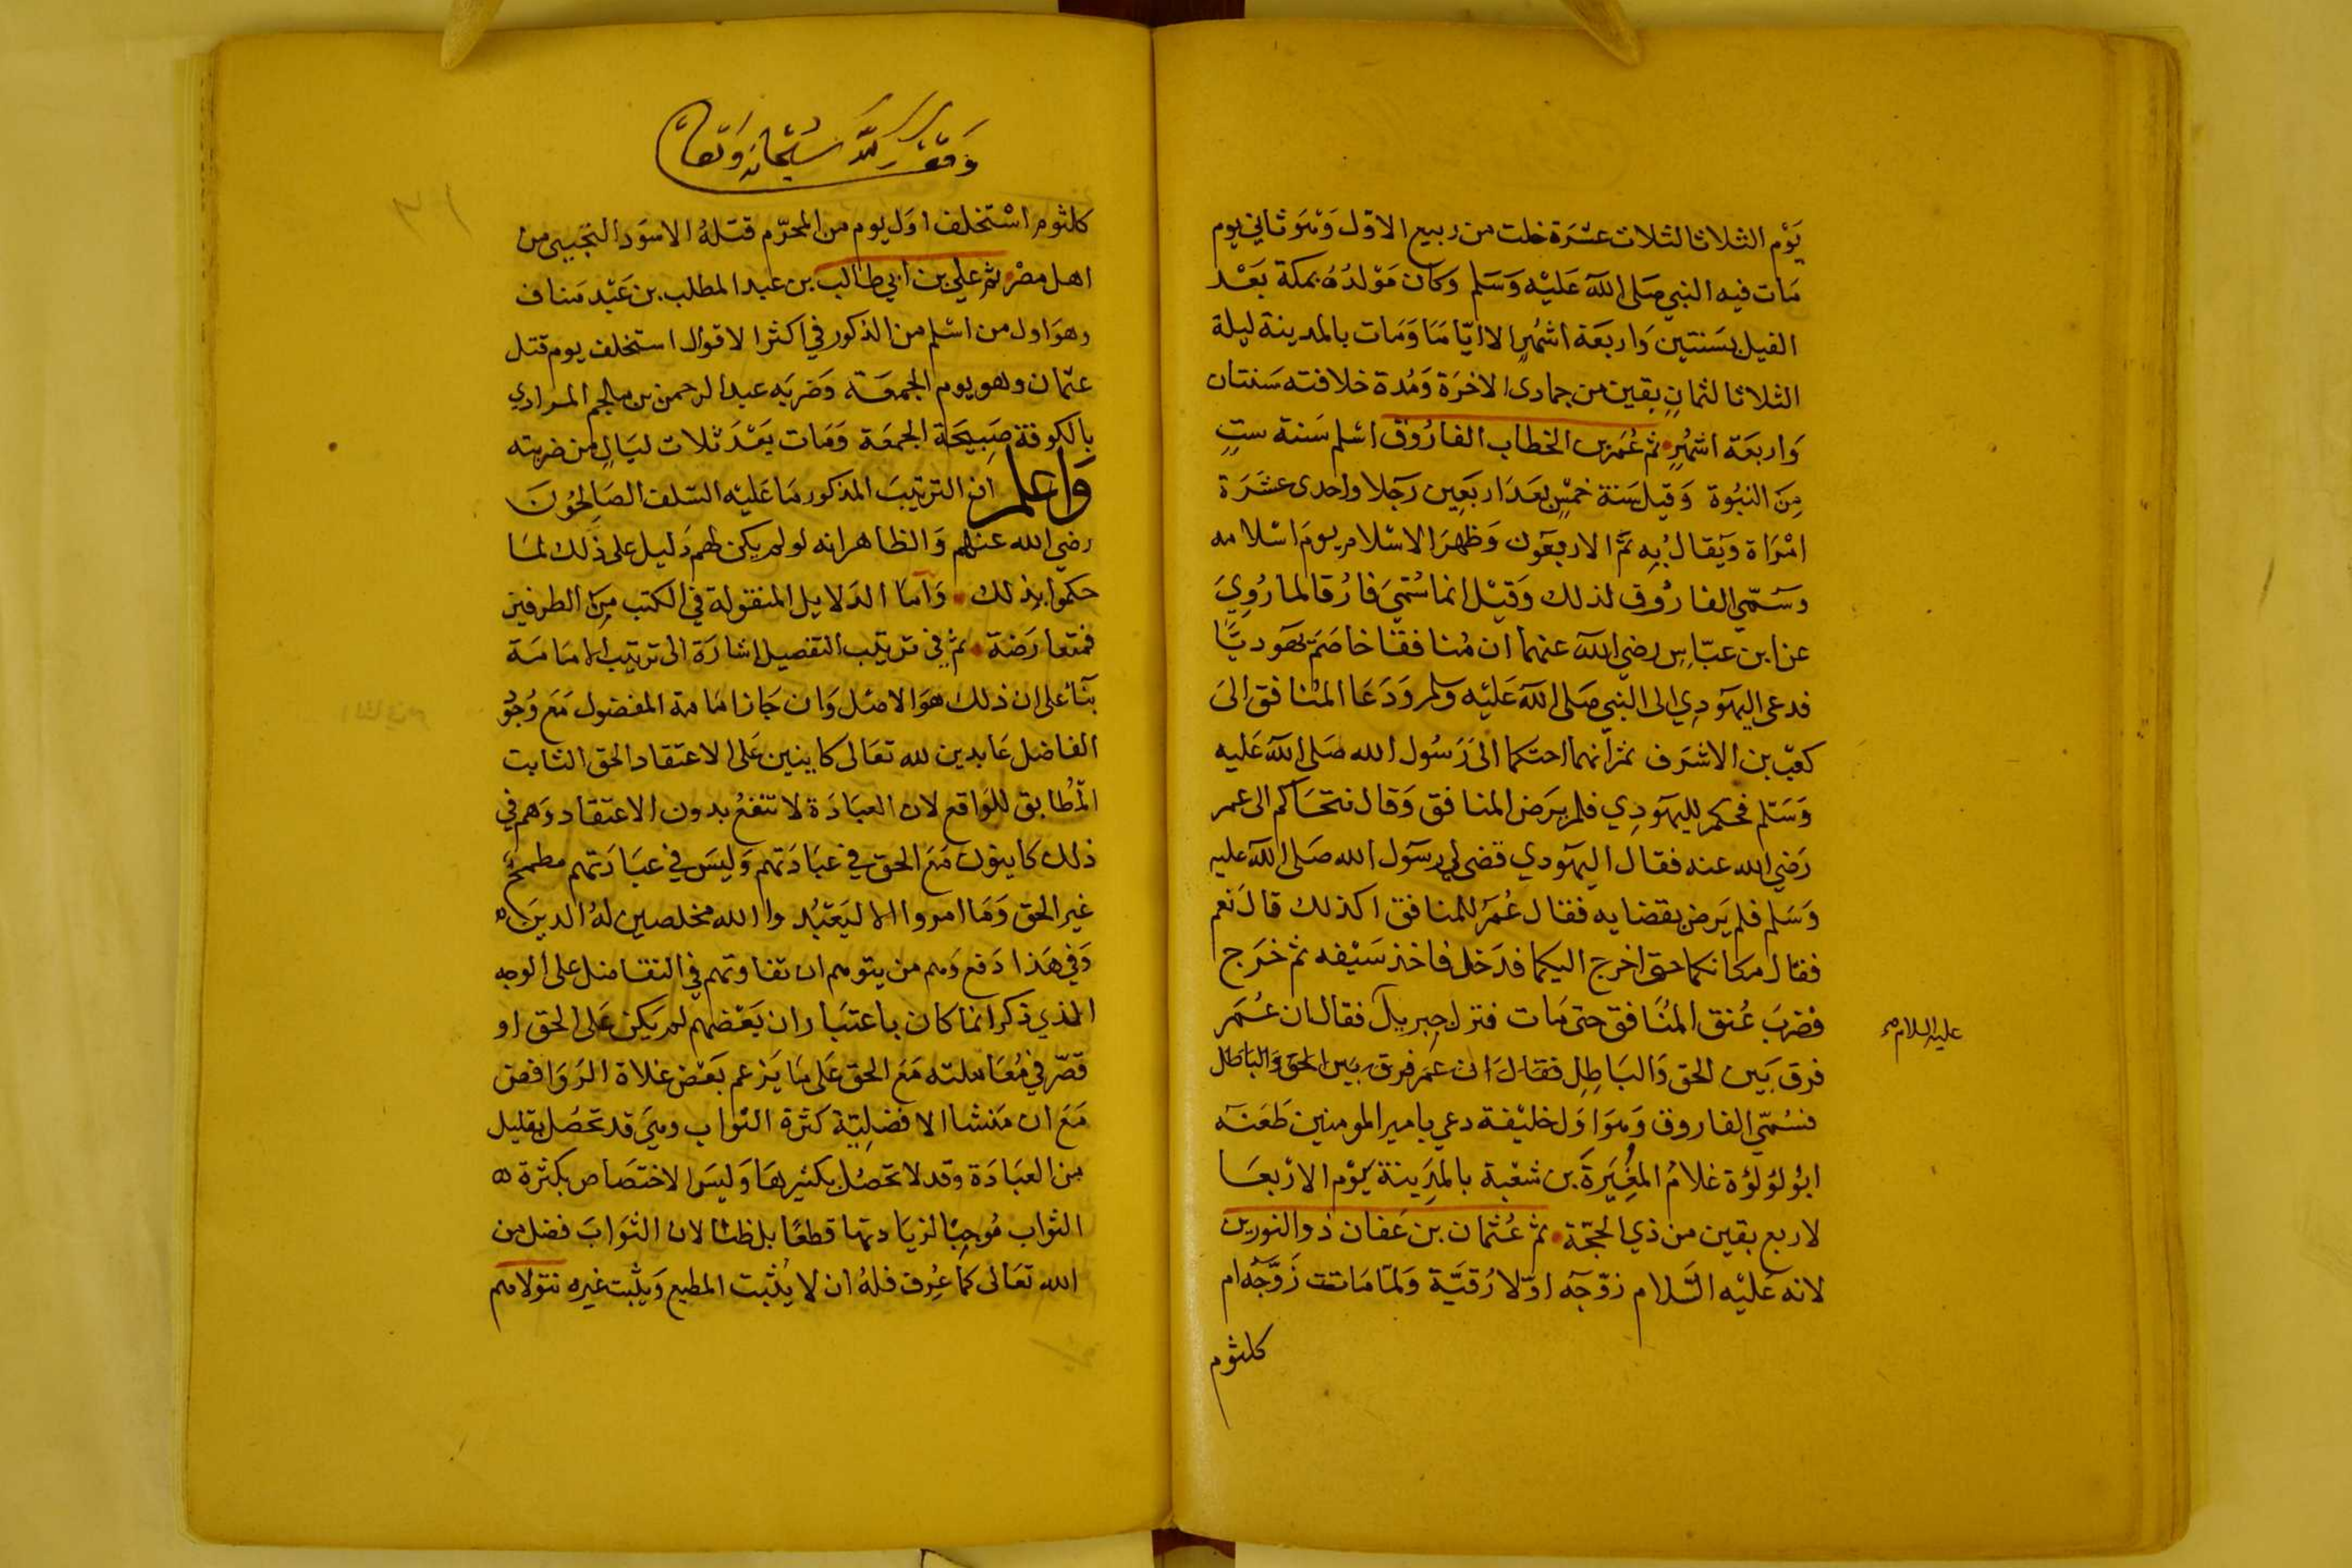 يَوْم الثلاثا لثلاث عشرَة خلت من ربيع الاوّل وَهْوَ ثاني يوم
مَات فيه النبي صَلى اللّٰه عَليْه وَسَلم وَكان مَوْلدُهُ بمكة بَعْد
الفيل بسَنتين وَاربعَة اشهُرٍ الا ايّامًا وَمَات بالمدينة ليلة
الثلاثا لثمانٍ بقين من جمادى الاخرَة وَمُدة خلافته سَنتان
وَاربعَة اشهُرٍ ثم عُمَر بن الخطاب الفارُوق اسْلم سَنة ستٍ
مِنَ النبُوة وَقيل سَنة خمسٍ بعدَ اربَعِين رَجلا واحدى عشرَة
امْرَاة وَيقال بُه تمَّ الاربعَون وَظهرَ الاسْلام يومَ اسْلامه
وسَمّي الفارُوق لذلك وَقيْل انما سُمّيَ فارُقا لما رُوِيَ
عن ابن عبّاسٍ رضي اللّٰه عنهما ان مُنافقا خاصَمَ يهَوديّا
فدعى اليهَودِي الى النبي صَلى اللّٰه عَليْه وسلم وَدَعَا المنافق الىَ
كعب بن الاشرَف ثم انهما احتكما الىَ رَسُول الله صَلى اللّٰه عَليه
وَسَلم فحكم لليهَودِي فلم يرَض المنافق وَقال نتحَاكم الى عمر
رَضي الله عنه فقال اليهَودي قضى لي رسَول الله صَلى اللّٰه عليه
وَسَلم فلم يَرض بقضايه فقال عُمَر للمنافق اكذلك قالَ نعم
فقال مكانكما حتى اخرج اليكما فدَخل فاخذ سَيْفه ثم خرَج
فضربَ عُنق المنَافق حتى مَات فنزل جبريل فقال ان عُمَر
عليه السلام صح
فرق بَين الحق وَالبَاطِل فقال ان عمَر فرق بَين الحق وَالباطل
فسُمّي الفاروق وَهوَ اوَل خليْفة دعي بامير المومنين طعَنَه
ابُو لؤلؤة غلامُ المغِيَرةَ بن شعْبة بالمدَينة يَوْم الارْبعَا
لاربع بقين من ذي الحجّة ثم عُثمان بن عَفان ذو النورين
لانه عَليْه السَّلام زوّجَه اوّلا رُقيَّة وَلمّا مَاتت زَوَّجَه ام
كلثوم
وَقف للّٰه سُبْحانه وتعالى
١٦
كلثوم اسْتخلف اوَل يوم من المحرّم قتلهُ الاسوَد التجيبي من
اهل مصْر ثم علي بن ابي طالب بن عبد المطلب بن عَبْد مَناف
وهوَ اول من اسْلم من الذكور في اكثر الاقوال استخلف يوم قتل
عثمان وهو يوم الجمعَة وَضربَه عبد الرحمن بن ملجم المرادي
بالكوفة صَبِيحَة الجمعَة وَمَات بَعْدَ ثلاث ليَالٍ من ضربته
وَاعلم ان الترتيبَ المذكور مَا عَليْه السّلف الصَالِحُونَ
رضي الله عنهم وَالظاهر انه لو لم يكن لهم دَليل على ذلك لمَا
حكموا بذلك وَامّا الدَلايل المنقولة في الكتب مِنَ الطرفين
فمتعارَضة ثم في ترتيب التفضيل اشارَة الى ترتيب الامَامَة
بنَآءً على ان ذلك هوَ الاصْل وَان جَاز امَامة المفضول مَعَ وُجُو
الفاضل عَابدين لله تعَالى كاينين عَلى الاعتقاد الحق الثابت
المُطابق للوَاقع لان العبَادَة لا تنْفعُ بدون الاعتقاد وَهم في
ذلك كاينون مَعَ الحق في عبَادَتهم وَليسَ في عبَادَتهم مطمحُ
غير الحق وَمَا امروا الا ليَعْبُدوا الله مخلصين لهُ الدينَ
وَفي هَذا دَفع وَهم من يتوهم ان تفاوتهم في التفاضل على الوجه
الذي ذكر انما كان باعتبَار ان بَعْضهم لم يكن عَلى الحق او
قصّر في مُعَاملته مَعَ الحق عَلى مَا يَزعم بَعْض غلاة الرَوَافض
مَعَ ان مَنشا الافضلِيّة كثرة الثواب وهيَ قد تحصُل بقليل
من العبَادَة وقد لا تحصُل بكثيرهَا وَليسَ الاختصَاص بكثرة
الثواب مُوجبًا لزيَادتها قطعًا بل ظنًا لان الثوَابَ فضل من
الله تعَالى كما عُرِف فلهُ ان لا يُثيبَ المطيع وَيثيبَ غيره نتولاهم